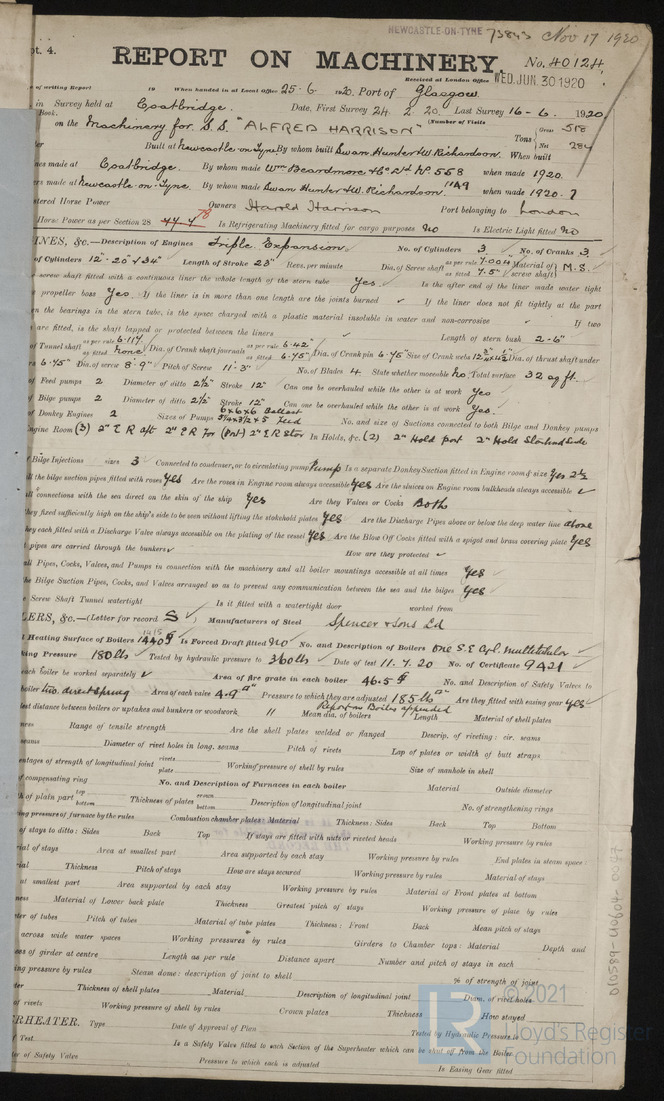 NEWCASTLE-ON-TYNE 73843 Nov 17 1920
pt. 4.
REPORT ON MACHINERY. No. 40124
Received at London Office WED. JUN. 30 1920
of writing Report 19 When handed in at Local Office 25-6- 1920. Port of Glasgow
in Survey held at Coatbridge. Date, First Survey 24. 2. 20. Last Survey 16-6. 1920
Book. (Number of Visits
on the Machinery for S.S. "ALFRED HARRISON" Tons Gross 518 Net 284
Built at Newcastle on Tyne By whom built Swan. Hunter & W. Richardson. When built
nes made at Coatbridge. By whom made Wm Beardmore & Co Ltd No 558 when made 1920.
rs made at Newcastle-on-Tyne. By whom made Swan Hunter & W. Richardson 1149 when made 1920. 7
stered Horse Power Owners Harold Harrison Port belonging to London
Horse Power as per Section 28 78 Is Refrigerating Machinery fitted for cargo purposes No Is Electric Light fitted No
INES, &c.—Description of Engines Triple Expansion No. of Cylinders 3 No. of Cranks 3
of Cylinders 12"-20" & 34" Length of Stroke 23" Revs. per minute Dia. of Screw shaft as per rule 7.004 as fitted 7.5" Material of screw shaft M.S.
screw shaft fitted with a continuous liner the whole length of the stern tube Yes. Is the after end of the liner made water tight
propeller boss Yes. If the liner is in more than one length are the joints burned If the liner does not fit tightly at the part
n the bearings in the stern tube, is the space charged with a plastic material insoluble in water and non-corrosive If two
are fitted, is the shaft lapped or protected between the liners Length of stern bush 2-6"
of Tunnel shaft as per rule 6.117 as fitted none Dia. of Crank shaft journals as per rule 6.42" as fitted 6.75" Dia. of Crank pin 6.75" Size of Crank webs Dia. of thrust shaft under
rs 6.75" Dia. of screw 8'-9" Pitch of Screw 11'-3" No. of Blades 4 State whether moveable No Total surface 32 sq ft.
of Feed pumps 2 Diameter of ditto 2½" Stroke 12" Can one be overhauled while the other is at work Yes
of Bilge pumps 2 Diameter of ditto 2½" Stroke 12" Can one be overhauled while the other is at work Yes.
of Donkey Engines 2 Sizes of Pumps 6x6x6 Ballast Feed No. and size of Suctions connected to both Bilge and Donkey pumps
ngine Room (3) 2" E R aft 2" E R For (Port) 2" E R Star In Holds, &c. (2) 2" Hold port 2" Hold Starboard Side
f Bilge Injections sizes 3 Connected to condenser, or to circulating pump Pump Is a separate Donkey Suction fitted in Engine room & size Yes 2½
ll the bilge suction pipes fitted with roses Yes Are the roses in Engine room always accessible Yes Are the sluices on Engine room bulkheads always accessible
ll connections with the sea direct on the skin of the ship Yes Are they Valves or Cocks Both
they fixed sufficiently high on the ship's side to be seen without lifting the stokehold plates Yes Are the Discharge Pipes above or below the deep water line above
hey each fitted with a Discharge Valve always accessible on the plating of the vessel Yes Are the Blow Off Cocks fitted with a spigot and brass covering plate Yes
pipes are carried through the bunkers How are they protected
all Pipes, Cocks, Valves, and Pumps in connection with the machinery and all boiler mountings accessible at all times Yes
he Bilge Suction Pipes, Cocks, and Valves arranged so as to prevent any communication between the sea and the bilges Yes
e Screw Shaft Tunnel watertight Is it fitted with a watertight door worked from
LERS, &c.—(Letter for record S) Manufacturers of Steel Spencer & Sons Ld
l Heating Surface of Boilers 1415 Is Forced Draft fitted No No. and Description of Boilers One S.E. Cyl. multitubular
king Pressure 180 lbs Tested by hydraulic pressure to 360 lbs Date of test 11. 7. 20 No. of Certificate 9421
each boiler be worked separately Area of fire grate in each boiler 46.5 No. and Description of Safety Valves to
boiler two direct spring Area of each valve 4.9 Pressure to which they are adjusted 185 lbs Are they fitted with easing gear Yes
Report on Boilers appended
lest distance between boilers or uptakes and bunkers or woodwork 11 Mean dia. of boilers Length Material of shell plates
ness Range of tensile strength Are the shell plates welded or flanged Descrip. of riveting: cir. seams
seams Diameter of rivet holes in long. seams Pitch of rivets Lap of plates or width of butt straps
entages of strength of longitudinal joint rivets plate Working pressure of shell by rules Size of manhole in shell
of compensating ring No. and Description of Furnaces in each boiler Material Outside diameter
h of plain part top bottom Thickness of plates crown bottom Description of longitudinal joint No. of strengthening rings
ing pressure of furnace by the rules Combustion chamber plates: Material Thickness: Sides Back Top Bottom
of stays to ditto: Sides Back Top If stays are fitted with nuts or riveted heads Working pressure by rules
ial of stays Area at smallest part Area supported by each stay Working pressure by rules End plates in steam space:
ial Thickness Pitch of stays How are stays secured Working pressure by rules Material of stays
at smallest part Area supported by each stay Working pressure by rules Material of Front plates at bottom
ness Material of Lower back plate Thickness Greatest pitch of stays Working pressure of plate by rules
ter of tubes Pitch of tubes Material of tube plates Thickness: Front Back Mean pitch of stays
across wide water spaces Working pressures by rules Girders to Chamber tops: Material Depth and
ess of girder at centre Length as per rule Distance apart Number and pitch of stays in each
ing pressure by rules Steam dome: description of joint to shell % of strength of joint
ter Thickness of shell plates Material Description of longitudinal joint Diam. of rivet holes
of rivets Working pressure of shell by rules Crown plates Thickness How stayed
ERHEATER. Type Date of Approval of Plan Tested by Hydraulic Pressure to
f Test Is a Safety Valve fitted to each Section of the Superheater which can be shut off from the Boiler
ter of Safety Valve Pressure to which each is adjusted Is Easing Gear fitted
© 2021
Lloyd's Register
Foundation